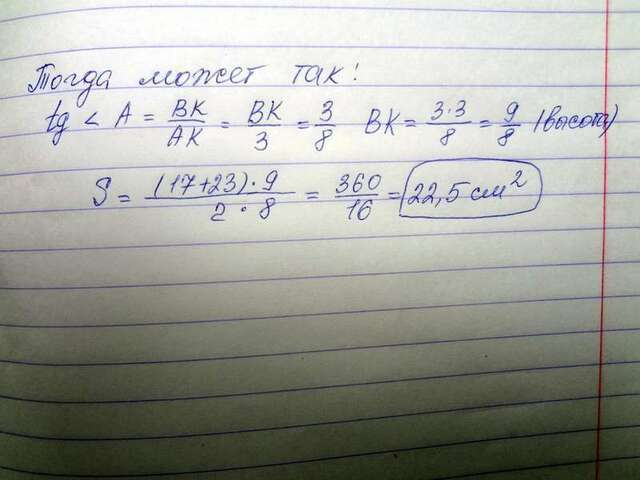 Тогда может так!
tg < A = BK/AK = BK/3 = 3/8 BK = 3·3/8 = 9/8 (высота)
S = (17+23)·9/2·8 = 360/16 = 22,5 см²